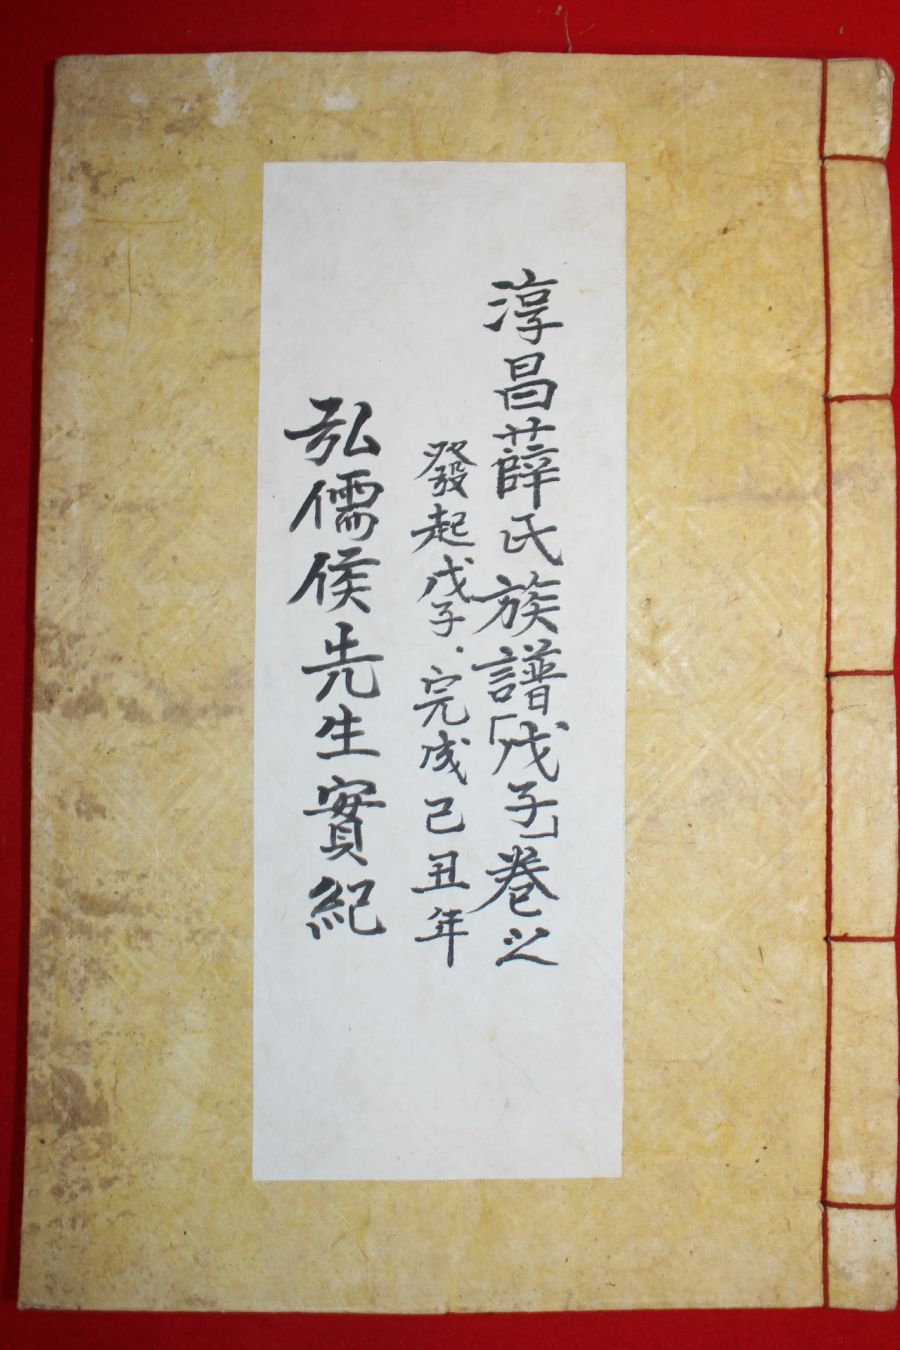 淳昌薛氏族譜「戊子」卷之
發起戊子·完成己丑年
弘儒侯先生實紀